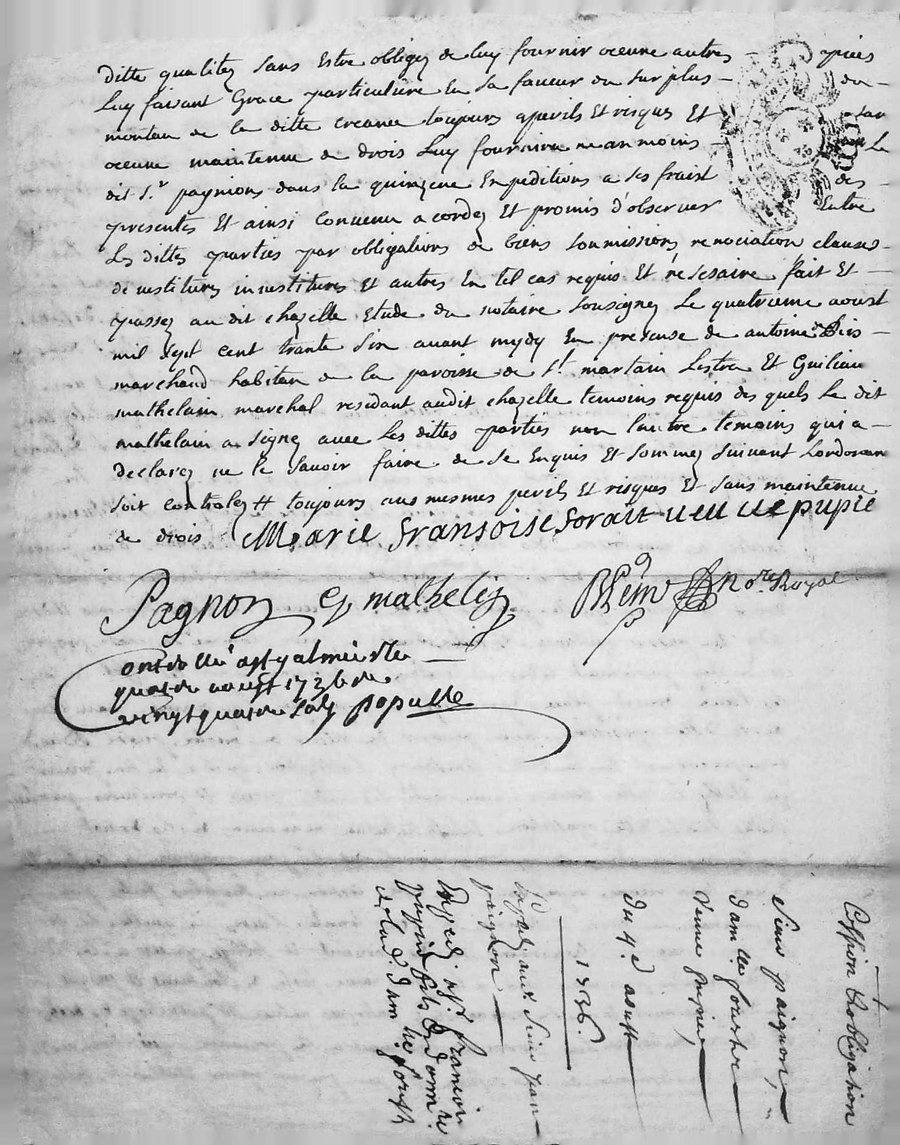 ditte qualitez sans Estre obligez de luy fournir oceune autres pies
Luy faisant Grace particuliere En sa faveur du surplus du
montan de la ditte creance toujours a perils Et risques Et
oceune maintenue de drois Luy fournira neanmoins Le
dit Sr. pagnions dans la quinzene Expeditions a ses fraist des
presentes Et ainsi Convenu acordez Et promis d'observer Entre
Les dittes parties par obligations de biens soumissions renociation clauses
de restitures investitures Et autres En tel cas requis Et nésesaire fait Et
passez au dit chazelle Etude du notaire sousignez Le quatrieme aoust
mil sept cent trante six avant mydy En presense de antoine
marchand habitan de la paroisse de St. martain Lestra Et Guiliau
mathelain marchal residant audit chazelle temoins requis des quels Le dit
mathelain a signez avec Les dittes parties non lautre temoins qui a
declarez ne le savoir faire de ce Enquis Et sommez suivant Lordonan
soit controlez # toujours aux mesmes perils Et risques Et sans maintenue
de drois Marie fransoise forait veuve pupie
Pagnon G mathelin nore. Royal
Controllé a St galmier le
quatre aoust 1736 Rc
vingt quatre sols Populle
Cession dobligation
Sieur paignon,
damlle. forest
veuve pupie,
du 4e. aoust
1736.
paignon
pupie fils